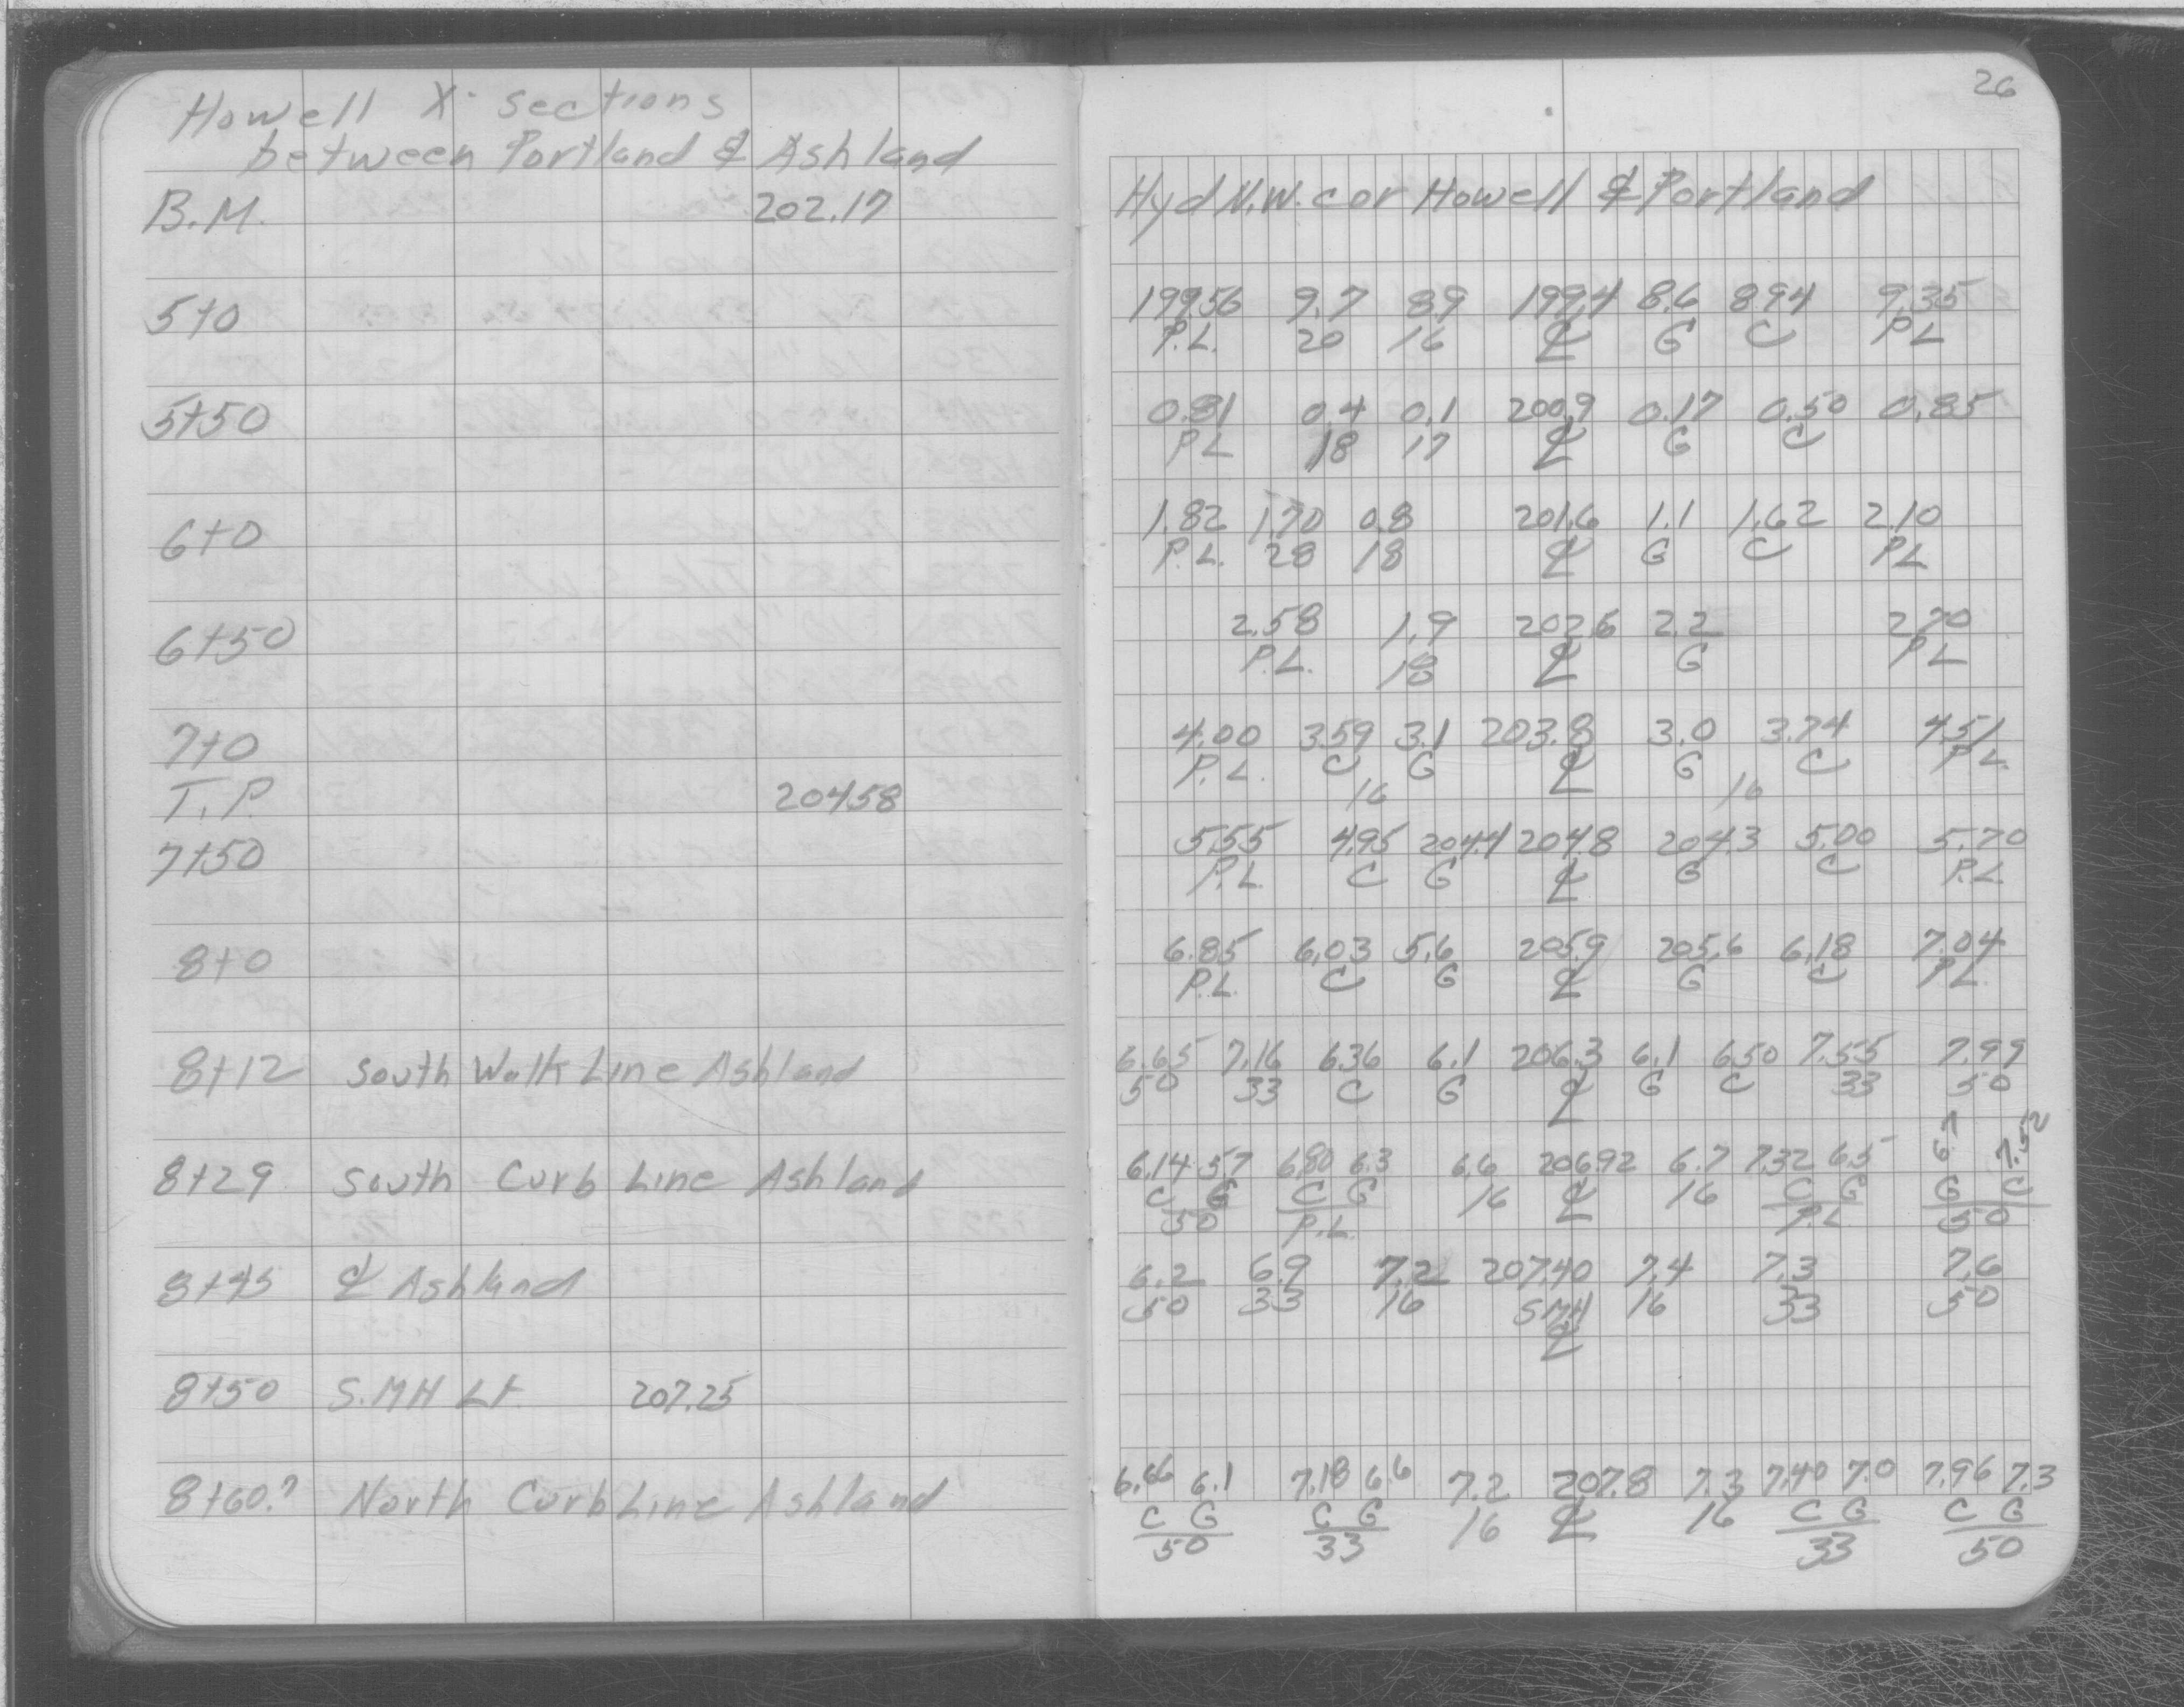 Howell X-sections
between Portland & Ashland
B.M. 202.17
5+0
5+50
6+0
6+50
7+0
T.P. 204.58
7+50
8+0
8+12 South Walk Line Ashland
8+29 South Curb Line Ashland
8+45 ℄ Ashland
8+50 S.MH Lt. 207.25
8+60.? North Curb Line Ashland
26
Hyd N.W. cor Howell & Portland
199.56 9.7 8.9 199.4 8.6 8.94 9.35
P.L. 20 16 ℄ G C P.L
0.81 0.4 0.1 200.9 0.17 0.50 0.85
P.L 18 17 ℄ G C
1.82 1.70 0.8 201.6 1.1 1.62 2.10
P.L. 28 18 ℄ G C P.L
2.58 1.9 202.6 2.2 2.70
P.L. 18 ℄ G P.L
4.00 3.59 3.1 203.8 3.0 3.74 4.51
P.L. C G ℄ G C P.L.
16 16
5.55 4.95 204.4 204.8 204.3 5.00 5.70
P.L. C G ℄ G C P.L.
6.85 6.03 5.6 205.9 205.6 6.18 7.04
P.L. C G ℄ G C P.L.
6.65 7.16 6.36 6.1 206.3 6.1 6.50 7.55 7.99
50 33 C G ℄ G C 33 50
6.14 5.7 6.80 6.3 6.6 206.92 6.7 7.32 6.5 6.7 7.52
C G C G 16 ℄ 16 C G G C
50 P.L. P.L 50
6.2 6.9 7.2 207.40 7.4 7.3 7.6
50 33 16 SMH 16 33 50
℄
6.66 6.1 7.18 6.6 7.2 207.8 7.3 7.40 7.0 7.96 7.3
C G C G 16 ℄ 16 C G C G
50 33 33 50